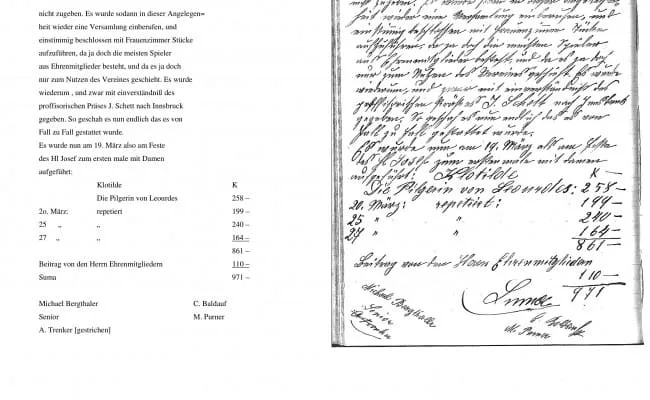 nicht zugeben. Es wurde sodann in dieser Angelegen=
heit wieder eine Versamlung einberufen, und
einstimig beschlossen mit Frauenzimmer Stücke
aufzuführen, da ja doch die meisten Spieler
aus Ehrenmitglieder besteht, und da es ja doch
nur zum Nutzen des Vereines geschieht. Es wurde
wiederum , und zwar mit einverständniß des
proffisorischen Präses J. Schett nach Innsbruck
gegeben. So geschah es nun endlich das es von
Fall zu Fall gestattet wurde.
Es wurde nun am 19. März also am Feste
des Hl Josef zum ersten male mit Damen
aufgeführt:
Klotilde K
Die Pilgerin von Leourdes 258 –
2o. März: repetiert 199 –
25 „ „ 240 –
27 „ „ 164 –
861 –
Beitrag von den Herrn Ehrenmitgliedern 110 –
Suma 971 –
Michael Bergthaler C. Baldauf
Senior M. Purner
A. Trenker [gestrichen]
einstimig beschlossen mit Frauenzimmer Stücke
aufzuführen, da ja doch die meisten Spieler
aus Ehrenmitglieder besteht, und da es ja doch
nur zum Nutzen des Vereines geschieht. Es wurde
wiederum, und zwar mit einverständniß des
proffisorischen Präses J. Schett nach Innsbruck
gegeben. So geschah es nun endlich das es von
Fall zu Fall gestattet wurde.
Es wurde nun am 19. März also am Feste
des Hl Josef zum ersten male mit Damen
aufgeführt: Klotilde K
Die Pilgerin von Leourdes: 258 –
20. März: repetiert: 199 –
25 " " 240 –
27 " " 164 –
861 –
Beitrag von den Herrn Ehrenmitgliedern
110 –
Suma 971
Michael Bergthaler
Senior
C. Baldauf
M. Purner